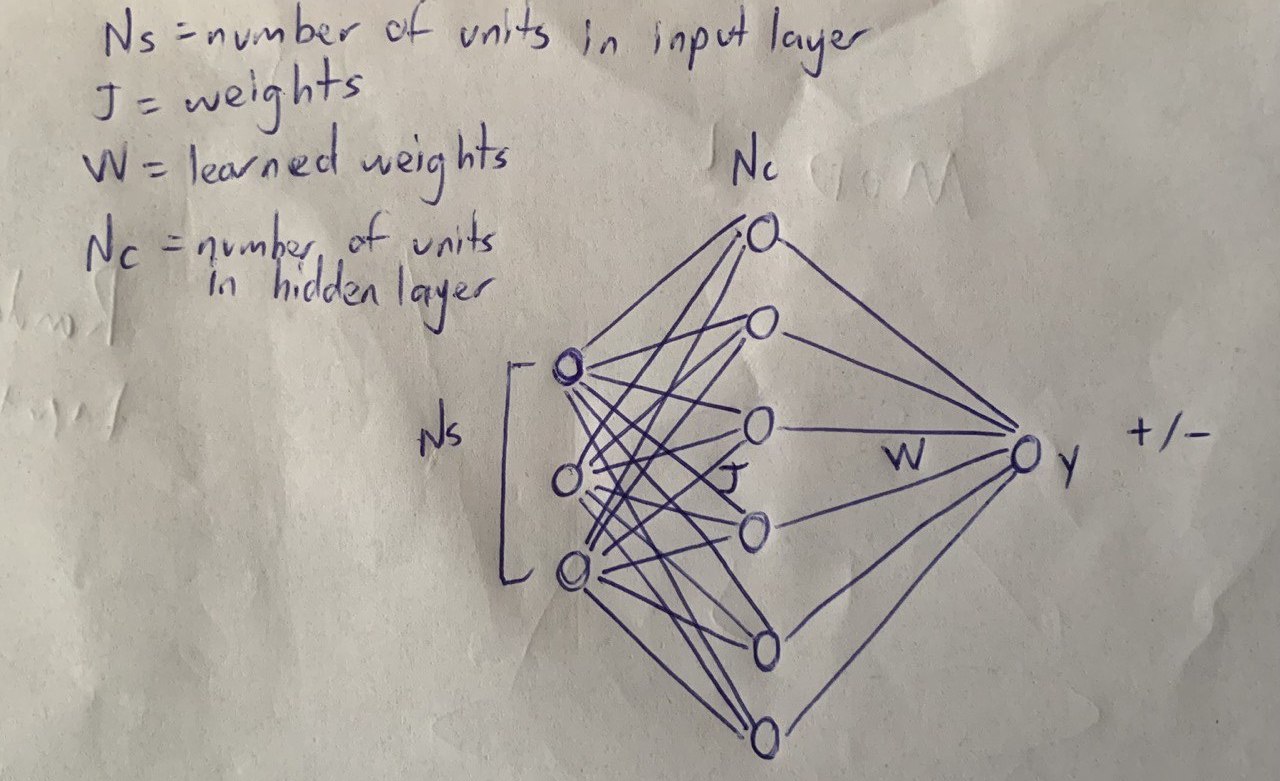 Ns = number of units in input layer
J = weights
W = learned weights
Nc = number of units
in hidden layer
Nc
Ns
J
W
Y
+/-